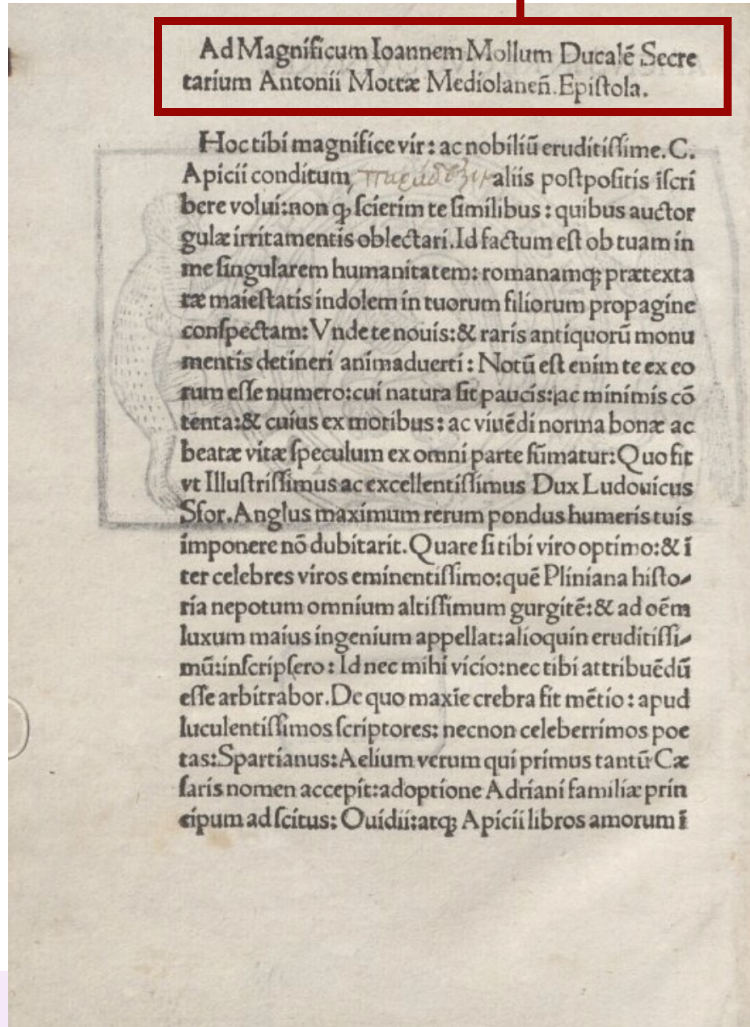 Ad Magnificum Ioannem Mollum Ducalē Secre
tarium Antonii Mottæ Mediolaneñ. Epiſtola.
Hoc tibi magnifice vir: ac nobiliū eruditiſſime. C.
Apicii conditum, aliis poſtpoſitis iſcri
bere volui: non ꝙ ſcierim te ſimilibus: quibus auctor
gulæ irritamentis oblectari. Id factum eſt ob tuam in
me ſingularem humanitatem: romanamqꝫ prætexta
tæ maieſtatis indolem in tuorum filiorum propagine
conſpectam: Vnde te nouis: & raris antiquorū monu
mentis detineri animaduerti: Notū eſt enim te ex eo
rum eſſe numero: cui natura ſit paucis: ac minimis cō
tenta: & cuius ex moribus: ac viuēdi norma bonæ ac
beatæ vitæ ſpeculum ex omni parte ſūmatur: Quo fit
vt Illuſtriſſimus ac excellentiſſimus Dux Ludouicus
Sfor. Anglus maximum rerum pondus humeris tuis
imponere nō dubitarit. Quare ſi tibi viro optimo: & ī
ter celebres viros eminentiſſimo: quē Pliniana hiſto-
ria nepotum omnium altiſſimum gurgitē: & ad oēm
luxum maius ingenium appellat: alioquin eruditiſſi-
mū: inſcripſero: Id nec mihi vicio: nec tibi attribuēdū
eſſe arbitrabor. De quo maxīe crebra fit mētio: apud
luculentiſſimos ſcriptores: necnon celeberrimos poe
tas: Spartianus: Aelium verum qui primus tantū Cæ
ſaris nomen accepit: adoptione Adriani familiæ prin
cipum ad ſcitus: Ouidii: atqꝫ Apicii libros amorum ī